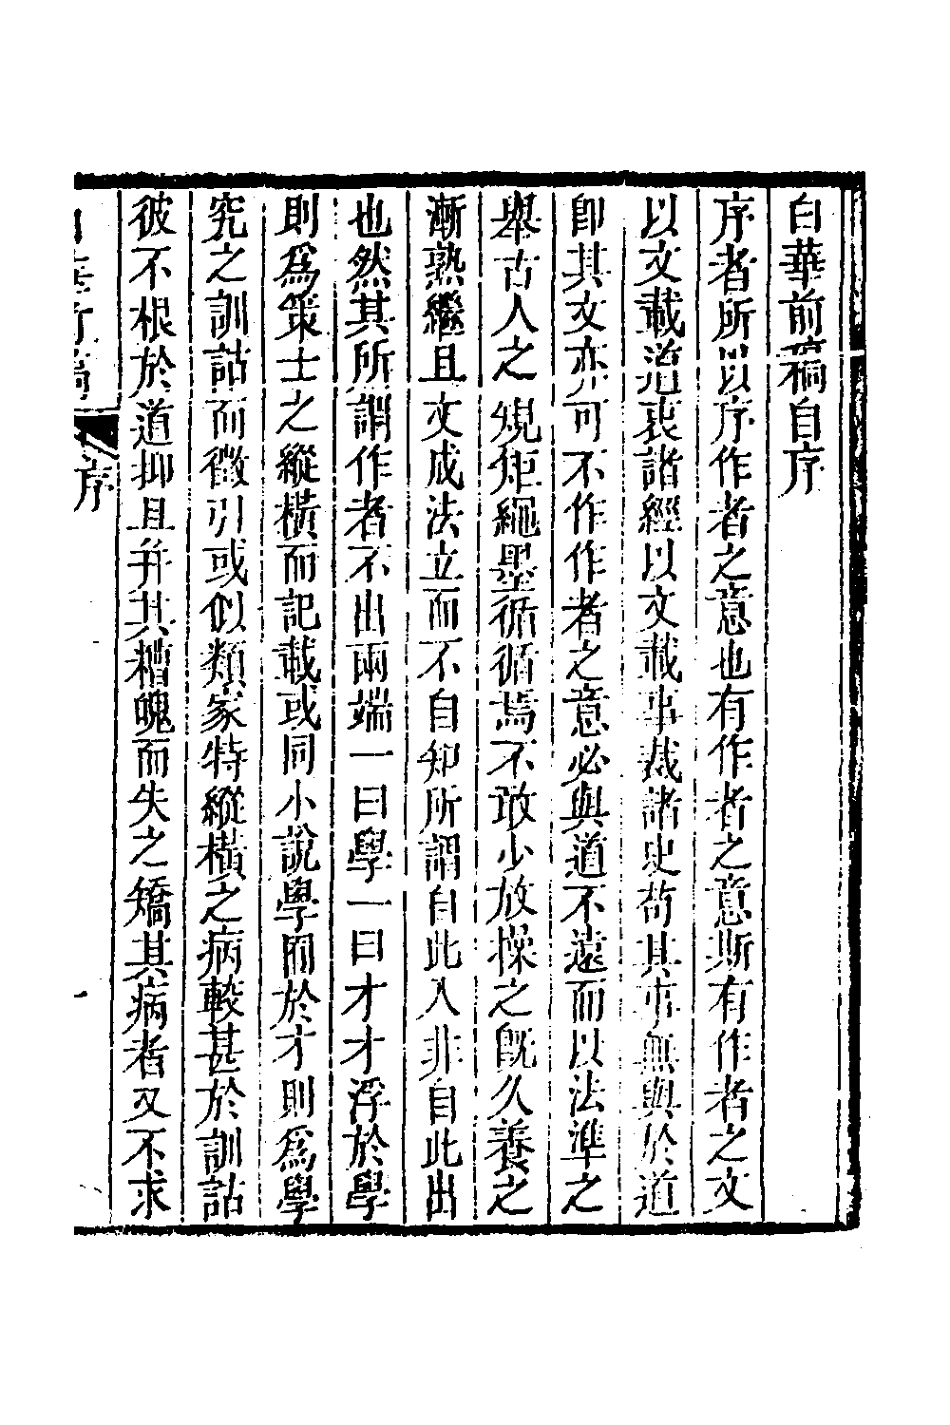 白華前稿自序
序者所以序作者之意也有作者之意斯有作者之文
以文載道衷諸經以文載事裁諸史苟其事無與於道
卽其文亦可不作作者之意必與道不遠而以法準之
舉古人之規矩繩墨循循焉不敢少放操之旣久養之
漸熟繼且文成法立而不自知所謂自此入非自此出
也然其所謂作者不出兩端一曰學一曰才才浮於學
則爲策士之縱橫而記載或同小說學囿於才則爲學
究之訓詁而徵引或似類家特縱橫之病較甚於訓詁
彼不根於道抑且幷其糟魄而失之矯其病者又不求
序